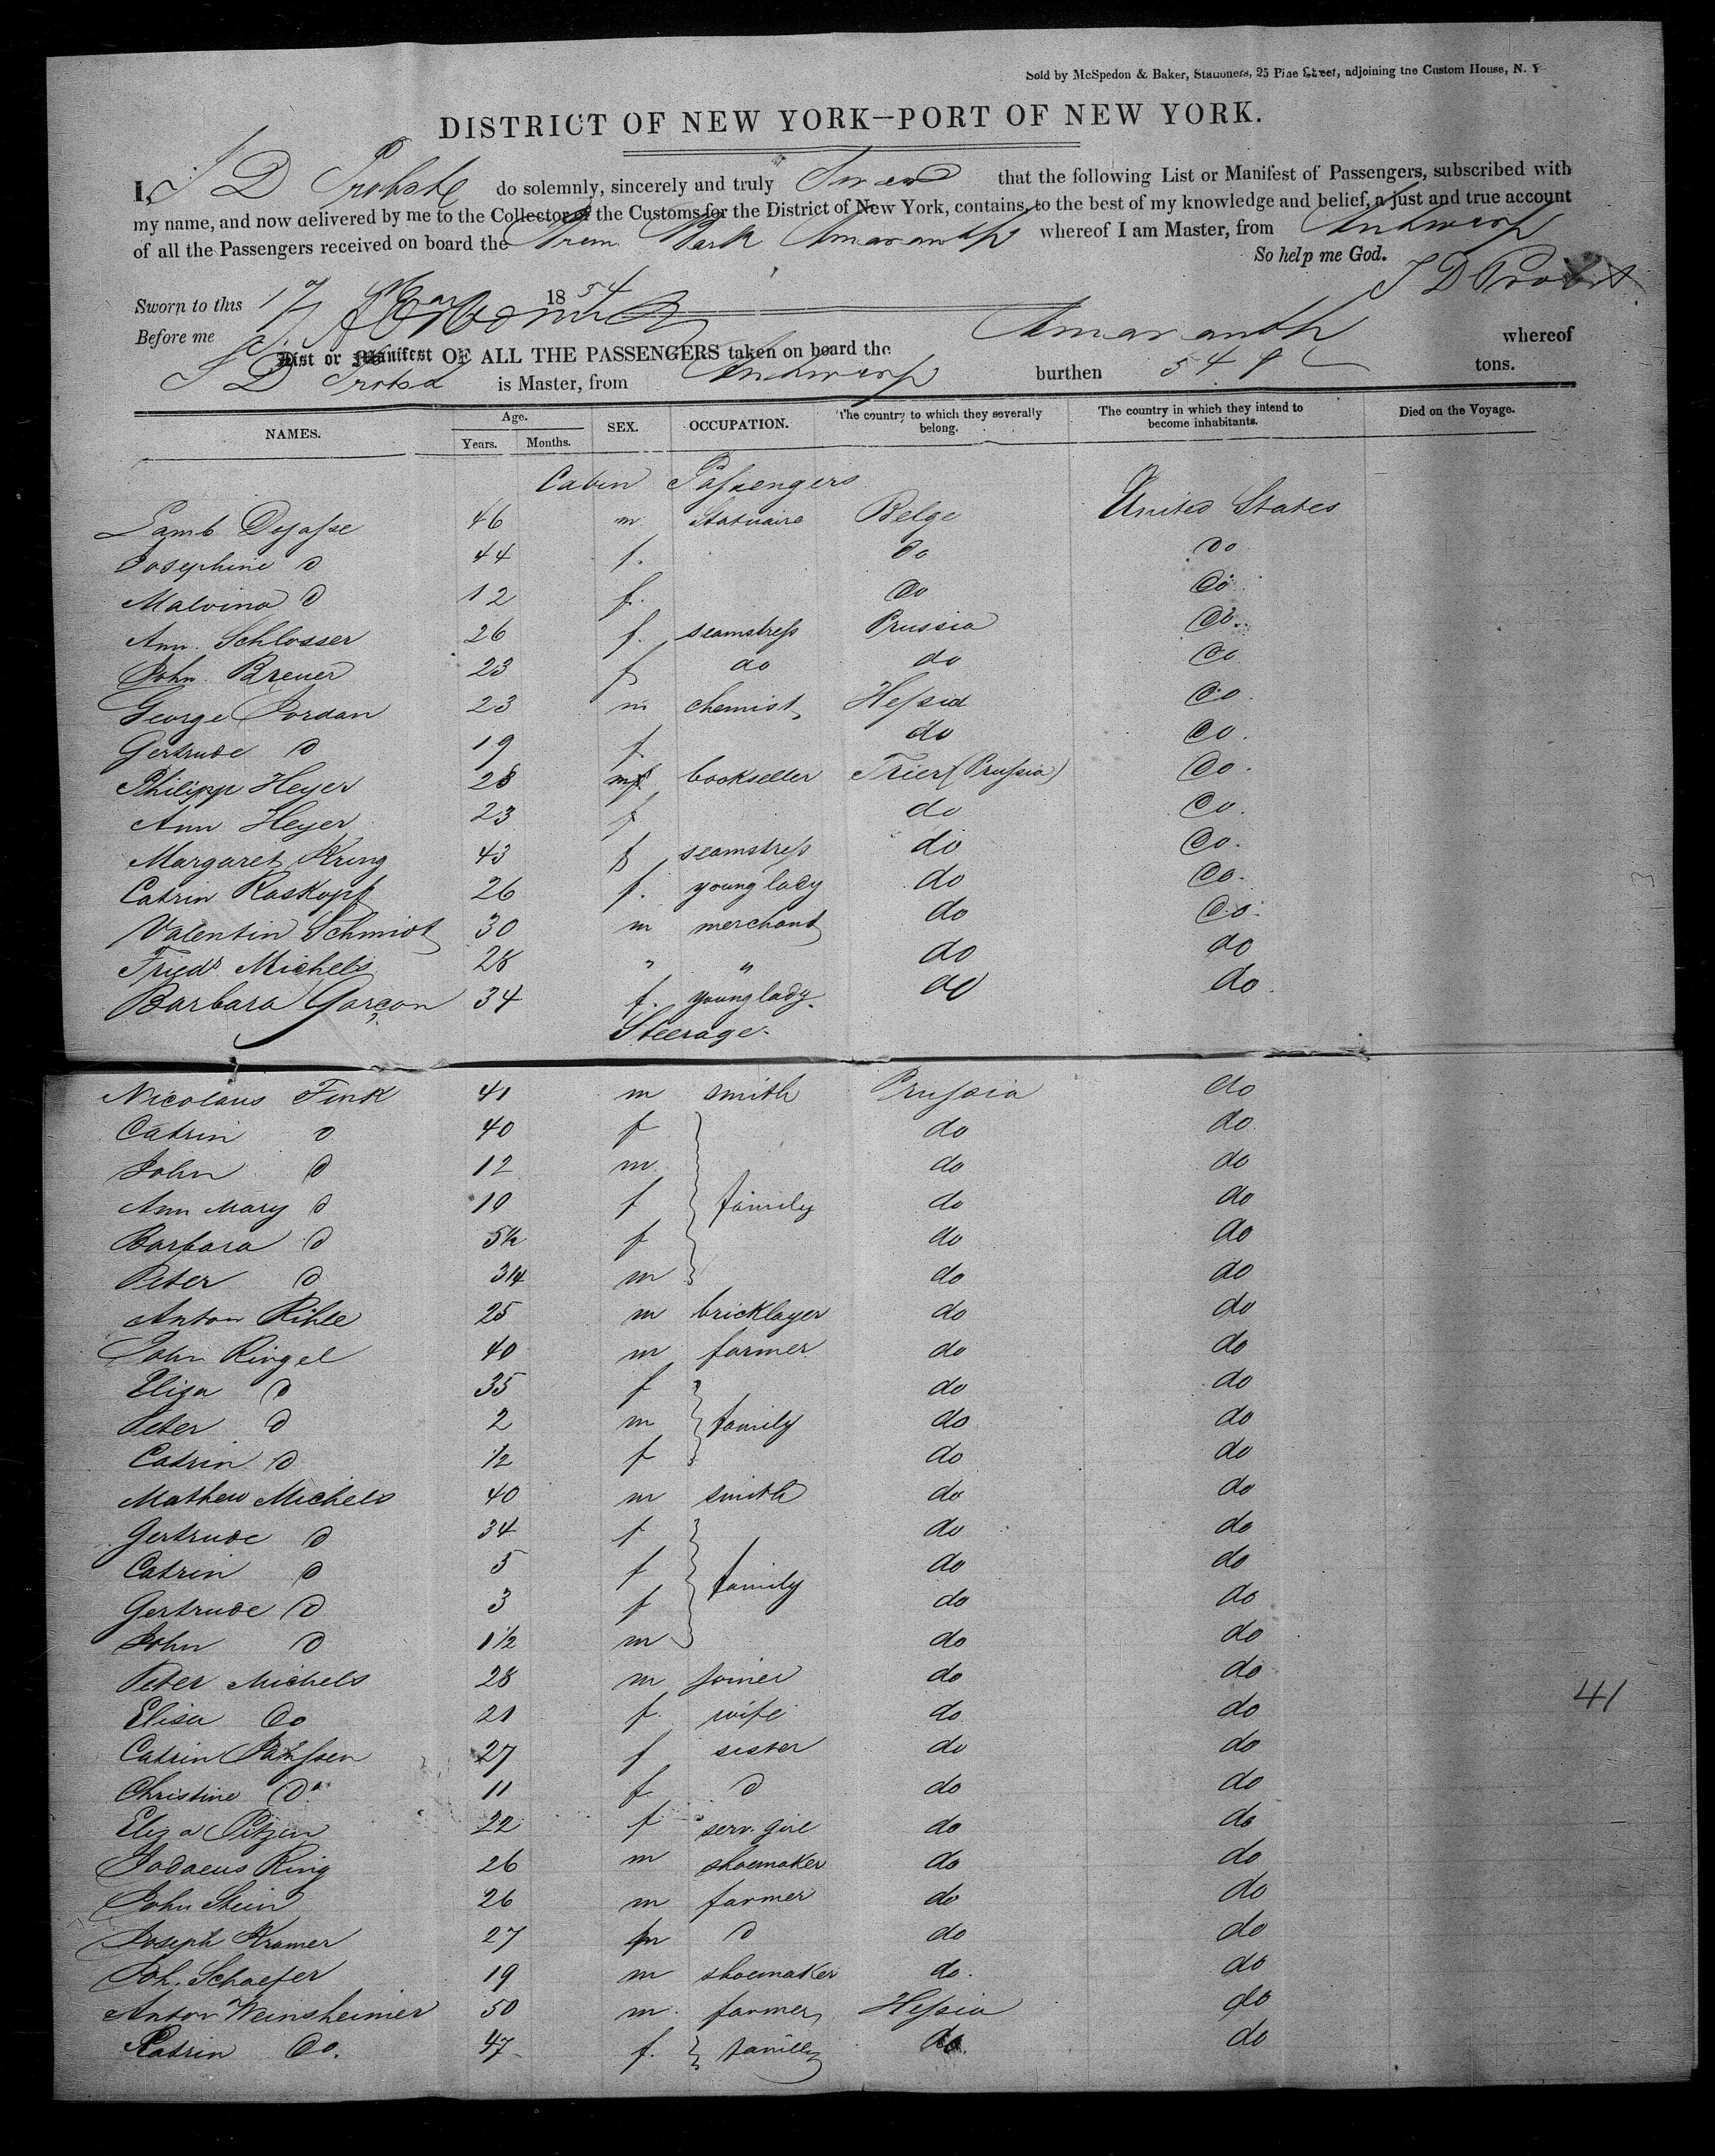 Sold by McSpedon & Baker, Stationers, 25 Pine Street, adjoining the Custom House, N. Y
DISTRICT OF NEW YORK—PORT OF NEW YORK.
I, do solemnly, sincerely and truly that the following List or Manifest of Passengers, subscribed with
my name, and now delivered by me to the Collector of the Customs for the District of New York, contains, to the best of my knowledge and belief, a just and true account
of all the Passengers received on board the Brem Bark Amaranth whereof I am Master, from Antwerp
So help me God.
Sworn to this 17 1854
Before me
List or Manifest OF ALL THE PASSENGERS taken on board the Amaranth whereof
is Master, from Antwerp burthen tons.
NAMES. Age. Years. Months. SEX. OCCUPATION. The country to which they severally belong. The country in which they intend to become inhabitants. Died on the Voyage.
Cabin Passengers
Lamb 46 m Statuaire Belge United States
Josephine d 44 f. do do
Malvina d 12 f. do do
Ann Schlosser 26 f. seamstress Prussia do
John Breuer 23 f do do do
George Jordan 23 m chemist Hessia do
Gertrude d 19 f do do
Philipp Heyer 28 m bookseller Trier (Prussia) do
Ann Heyer 23 f do do
Margaret Kring 43 f seamstress do do
Catrin Raskopf 26 f. young lady do do
Valentin Schmidt 30 m merchant do do
Fried. Michels 28 " " do do
Barbara Garcon 34 f. young lady. do do
Steerage.
Nicolaus Fink 41 m smith Prussia do
Catrin d 40 f do do
John d 12 m do do
Ann Mary d 10 f family do do
Barbara d 5½ f do do
Peter d 3/4 m do do
Anton Rihle 25 m bricklayer do do
John Ringel 40 m farmer do do
Elisa d 35 f do do
Peter d 2 m family do do
Catrin d ½ f do do
Mathew Michels 40 m smith do do
Gertrude d 34 f do do
Catrin d 5 f family do do
Gertrude d 3 f do do
John d 1½ m do do
Peter Michels 28 m joiner do do
Elisa do 21 f. wife do do
Catrin 27 f sister do do
Christine do 11 f d do do
Eliza Pitzen 22 f serv. girl do do
Jodaeus Ring 26 m shoemaker do do
John Stein 26 m farmer do do
Joseph Kramer 27 m d do do
Joh. Schaefer 19 m shoemaker do. do
Anton Weinsheimer 50 m. farmer Hessia do
Catrin do. 47 f. family do. do
41